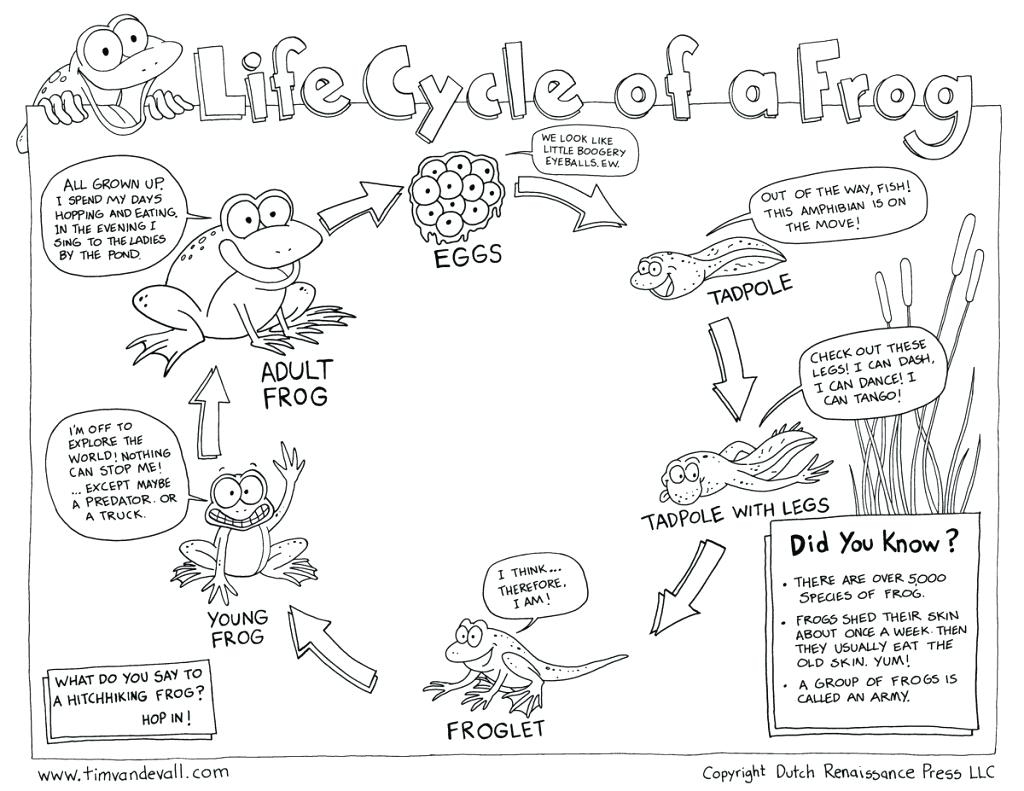 Life Cycle of a Frog
WE LOOK LIKE
LITTLE BOOGERY
EYEBALLS. EW.
EGGS
OUT OF THE WAY, FISH!
THIS AMPHIBIAN IS ON
THE MOVE!
TADPOLE
CHECK OUT THESE
LEGS! I CAN DASH,
I CAN DANCE! I
CAN TANGO!
TADPOLE WITH LEGS
I THINK...
THEREFORE,
I AM!
FROGLET
I'M OFF TO
EXPLORE THE
WORLD! NOTHING
CAN STOP ME!
... EXCEPT MAYBE
A PREDATOR. OR
A TRUCK.
YOUNG
FROG
ALL GROWN UP.
I SPEND MY DAYS
HOPPING AND EATING.
IN THE EVENING I
SING TO THE LADIES
BY THE POND.
ADULT
FROG
Did You Know?
• THERE ARE OVER 5,000
SPECIES OF FROG.
• FROGS SHED THEIR SKIN
ABOUT ONCE A WEEK. THEN
THEY USUALLY EAT THE
OLD SKIN. YUM!
• A GROUP OF FROGS IS
CALLED AN ARMY.
WHAT DO YOU SAY TO
A HITCHHIKING FROG?
HOP IN!
www.timvandevall.com
Copyright Dutch Renaissance Press LLC